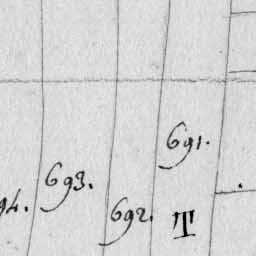 691.
693.
94.
692.
T